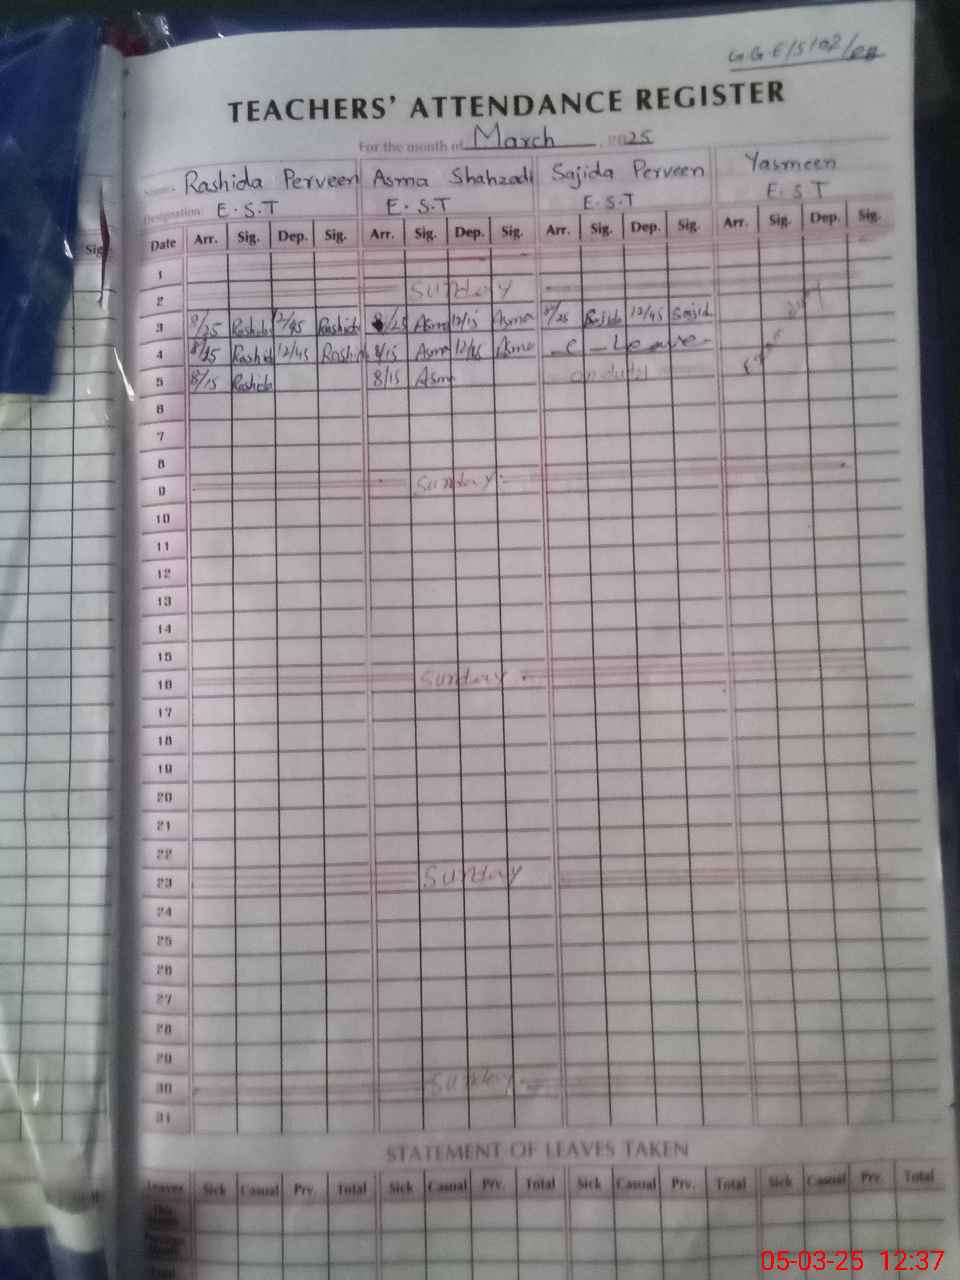 TEACHERS' ATTENDANCE REGISTER
For the month of March 2025
Name: Rashida Perveen Asma Shahzadi Sajida Perveen Yasmeen
Designation: E.S.T E.S.T E.S.T E.S.T
Sig.
Date Arr. Sig. Dep. Sig. Arr. Sig. Dep. Sig. Arr. Sig. Dep. Sig. Arr. Sig. Dep. Sig.
1
2 Sunday
3 8/25 Rashida 12/45 Rashida 8/25 Asma 12/15 Asma 8/25 Sajida 12/45 Sajid
4 Rashid 12/45 Rashid 8/15 Asma Asma C - Leave
5 8/15 Rashida 8/15 Asma
6
7
8
9 Sunday
10
11
12
13
14
15
16 Sunday
17
18
19
20
21
22
23 Sunday
24
25
26
27
28
29
30 Sunday
31
STATEMENT OF LEAVES TAKEN
Leaves Sick Casual Prv. Total Sick Casual Prv. Total Sick Casual Prv. Total Sick Casual Prv. Total
05-03-25 12:37